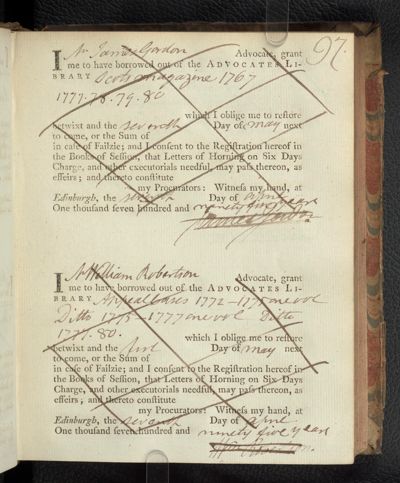 97.
I Mr James Gordon Advocate, grant
me to have borrowed out of the ADVOCATES LI-
BRARY Scots magazine 1767
1777. 78. 79. 80
which I oblige me to restore
betwixt and the seventh Day of May next
to come, or the Sum of
in case of Failzie; and I consent to the Registration hereof in
the Books of Session, that Letters of Horning on Six Days
Charge, and other executorials needful, may pass thereon, as
effeirs; and thereto constitute
my Procurators: Witness my hand, at
Edinburgh, the Day of
One thousand seven hundred and ninety five years
James Gordon
I Mr William Robertson Advocate, grant
me to have borrowed out of the ADVOCATES LI-
BRARY Appeal Cases 1772 – 1775 one vol
Ditto 1775 – 1777 one vol Ditto
1777. 80. which I oblige me to restore
betwixt and the first Day of May next
to come, or the Sum of
in case of Failzie; and I consent to the Registration hereof in
the Books of Session, that Letters of Horning on Six Days
Charge, and other executorials needful, may pass thereon, as
effeirs; and thereto constitute
my Procurators: Witness my hand, at
Edinburgh, the seventh Day of
One thousand seven hundred and ninety five years